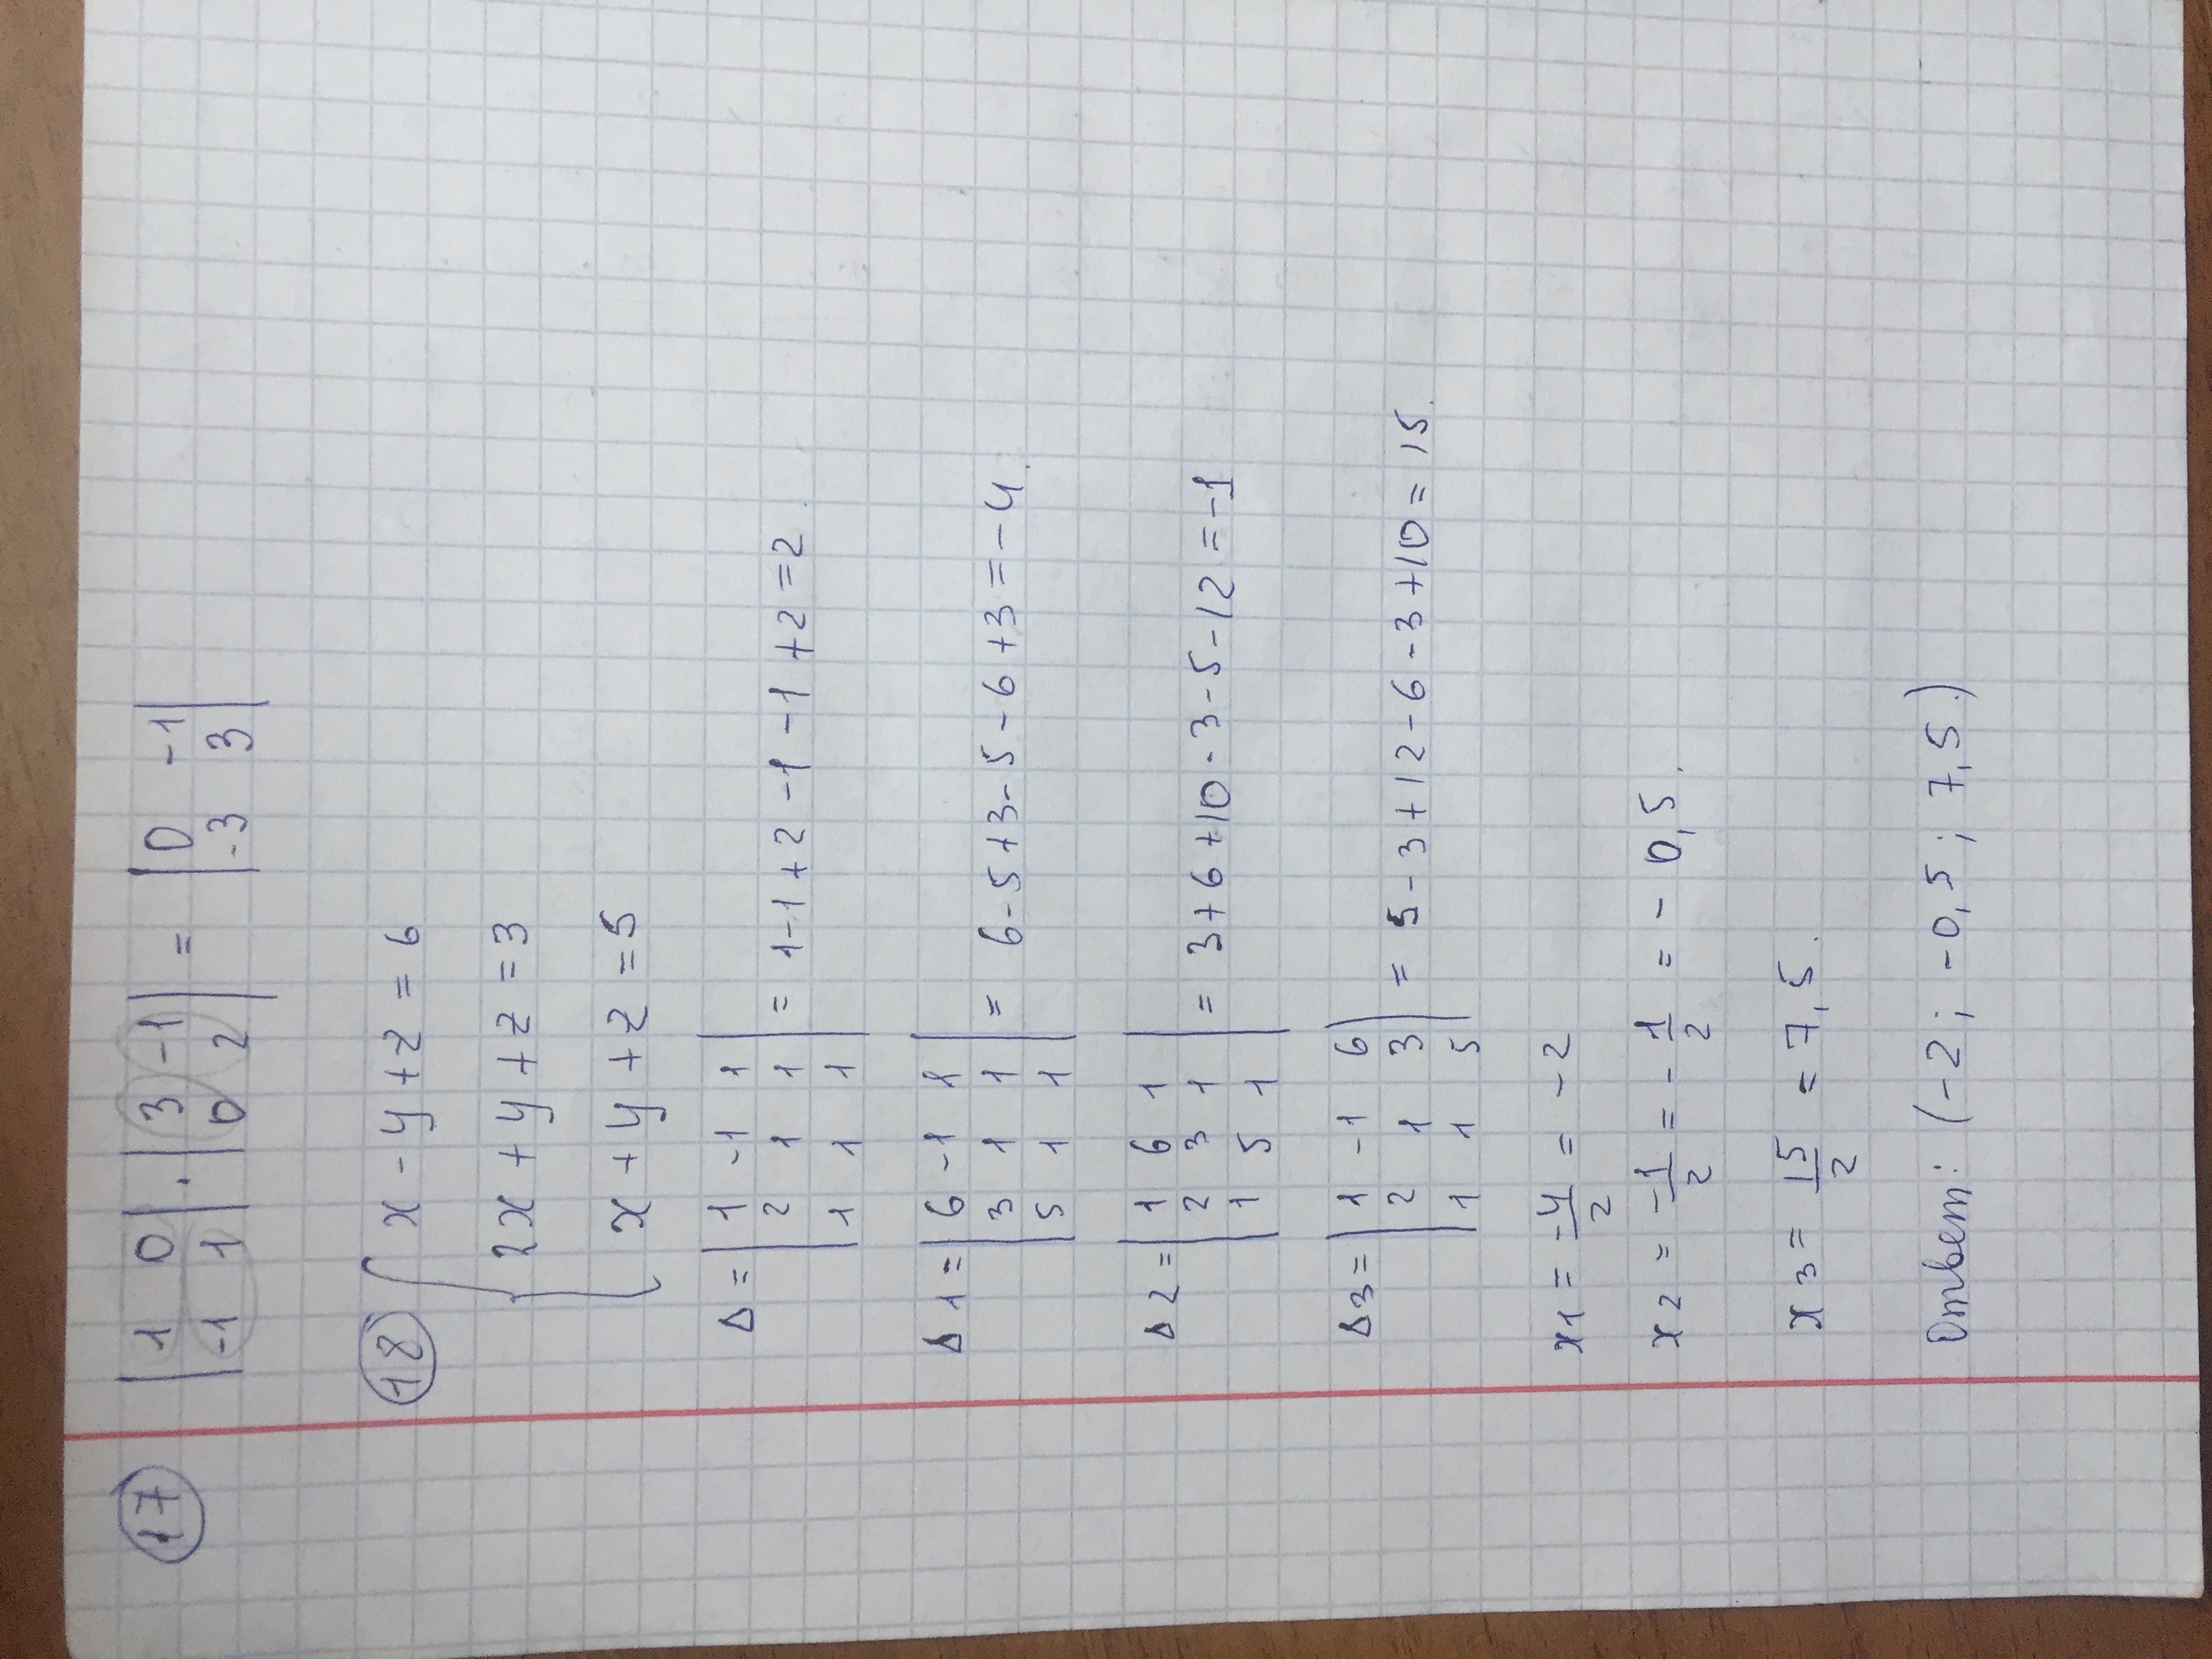 17 | 1 0 | · | 3 -1 | = | 0 -1 |
| -1 1 | | 0 2 | | -3 3 |
18 { x - y + z = 6
2x + y + z = 3
x + y + z = 5
Δ = | 1 -1 1 |
| 2 1 1 | = 1-1+2-1-1+2=2.
| 1 1 1 |
Δ1 = | 6 -1 1 |
| 3 1 1 | = 6-5+3-5-6+3=-4.
| 5 1 1 |
Δ2 = | 1 6 1 |
| 2 3 1 | = 3+6+10-3-5-12=-1
| 1 5 1 |
Δ3 = | 1 -1 6 |
| 2 1 3 | = 5-3+12-6-3+10=15.
| 1 1 5 |
x1 = -4/2 = -2
x2 = -1/2 = -1/2 = -0,5.
x3 = 15/2 = 7,5.
Ответ: (-2; -0,5; 7,5.)